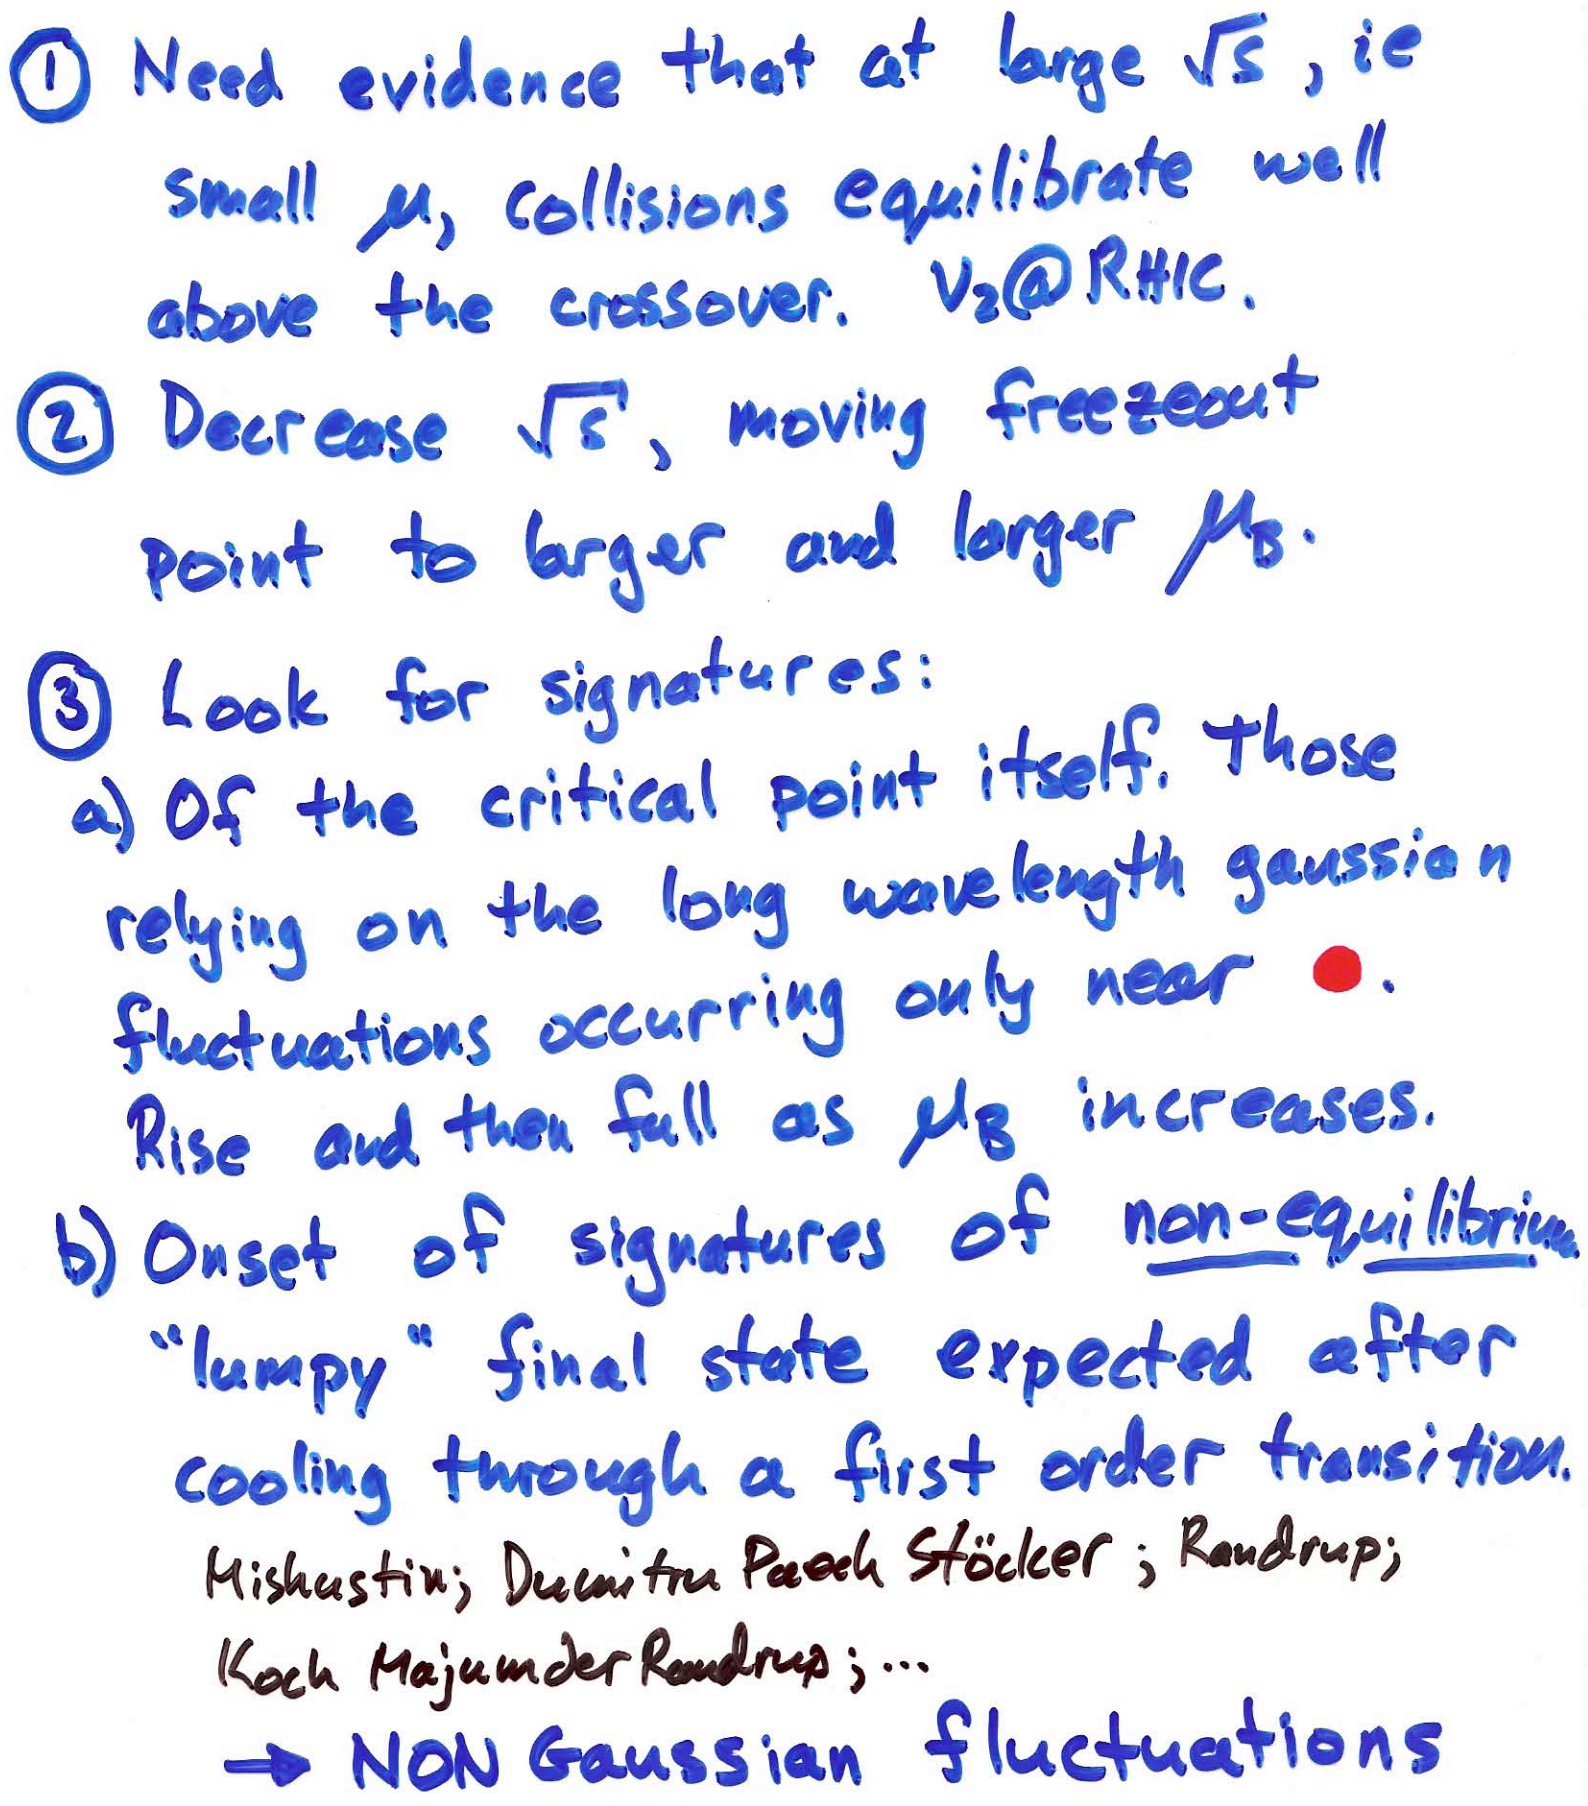 ① Need evidence that at large √s, ie
small μ, collisions equilibrate well
above the crossover. V₂@RHIC.
② Decrease √s, moving freezeout
point to larger and larger μ_B.
③ Look for signatures:
a) Of the critical point itself. Those
relying on the long wavelength gaussian
fluctuations occurring only near ●.
Rise and then fall as μ_B increases.
b) Onset of signatures of non-equilibrium
"lumpy" final state expected after
cooling through a first order transition.
Mishustin; Dumitru Paech Stöcker; Randrup;
Koch Majumder Randrup; ...
→ NON Gaussian fluctuations